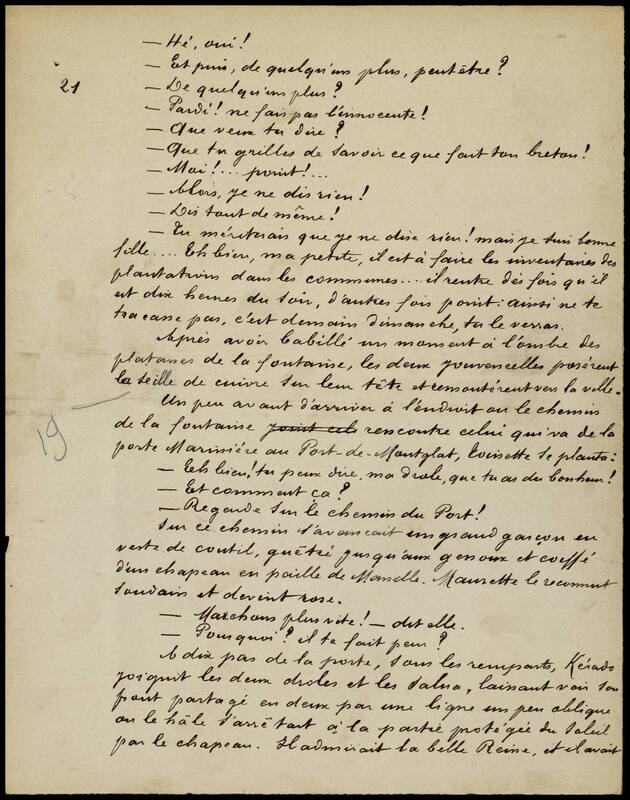 — Hé, oui !
— Et puis, de quelqu'un plus, peut être ?
21
— De quelqu'un plus ?
— Pardi ! ne fais pas l'innocente !
— Que veux tu dire ?
— Que tu grilles de savoir ce que fait ton breton !
— Moi !... point !...
— Alors, je ne dis rien !
— Dis tout de même !
— Tu mériterais que je ne dise rien ! mais je suis bonne
fille.... Eh bien, ma petite, il est à faire les inventaires des
plantations dans les communes.... il rentre des fois qu'il
est dix heures du soir, d'autres fois point : ainsi ne te
tracasse pas, c'est demain dimanche, tu le verras.
Après avoir babillé un moment à l'ombre des
platanes de la fontaine, les deux jouvencelles posèrent
la seille de cuivre sur leur tête et remontèrent vers la ville.
Un peu avant d'arriver à l'endroit où le chemin
19
de la fontaine joint cel rencontre celui qui va de la
porte Marinière au Port-de-Montglat, Loisette se planta :
— Eh bien, tu peux dire, ma drole, que tu as du bonheur !
— Et comment ça ?
— Regarde sur le chemin du Port !
Sur ce chemin s'avançait un grand garçon en
veste de coutil, guêtré jusqu'aux genoux et coiffé
d'un chapeau en paille de Manille. Maurette le reconnut
soudain et devint rose.
— Marchons plus vite ! — dit elle.
— Pourquoi ? il te fait peur ?
A dix pas de la porte, sous les remparts, Kérado
joignit les deux droles et les salua, laissant voir son
front partagé en deux par une ligne un peu oblique
où le hâle s'arrêtait à la partie protégée du soleil
par le chapeau. Il admirait la belle Reine, et il avait